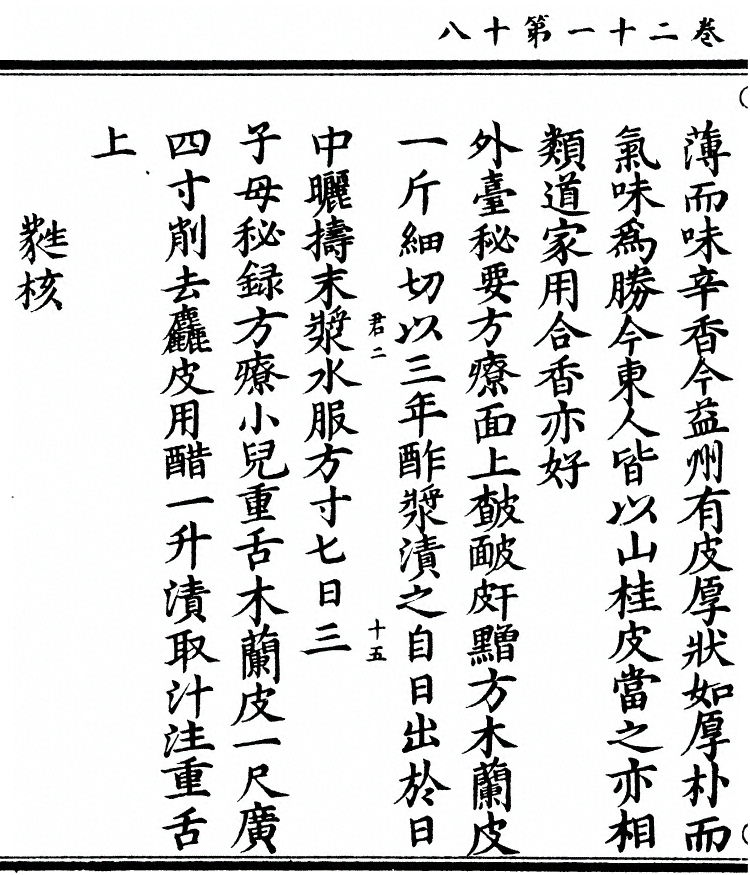 卷二十一第十八
薄而味辛香今益州有皮厚狀如厚朴而
氣味爲勝今東人皆以山桂皮當之亦相
類道家用合香亦好
外臺秘要方療面上皶皰皯黯方木蘭皮
一斤細切以三年酢漿漬之自日出於日
君二
十五
中曬擣末漿水服方寸七日三
子母秘録方療小兒重舌木蘭皮一尺廣
四寸削去麤皮用醋一升漬取汁注重舌
上
蕤核